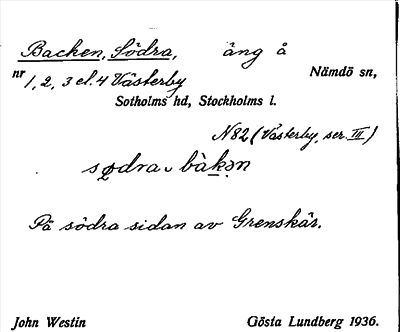 Backen, Södra, äng å
nr 1, 2, 3 el. 4 Västerby Nämdö sn,
Sotholms hd, Stockholms l.
N82 (Västerby, ser. III)
sødra bàkən
På södra sidan av Grenskär.
John Westin Gösta Lundberg 1936.